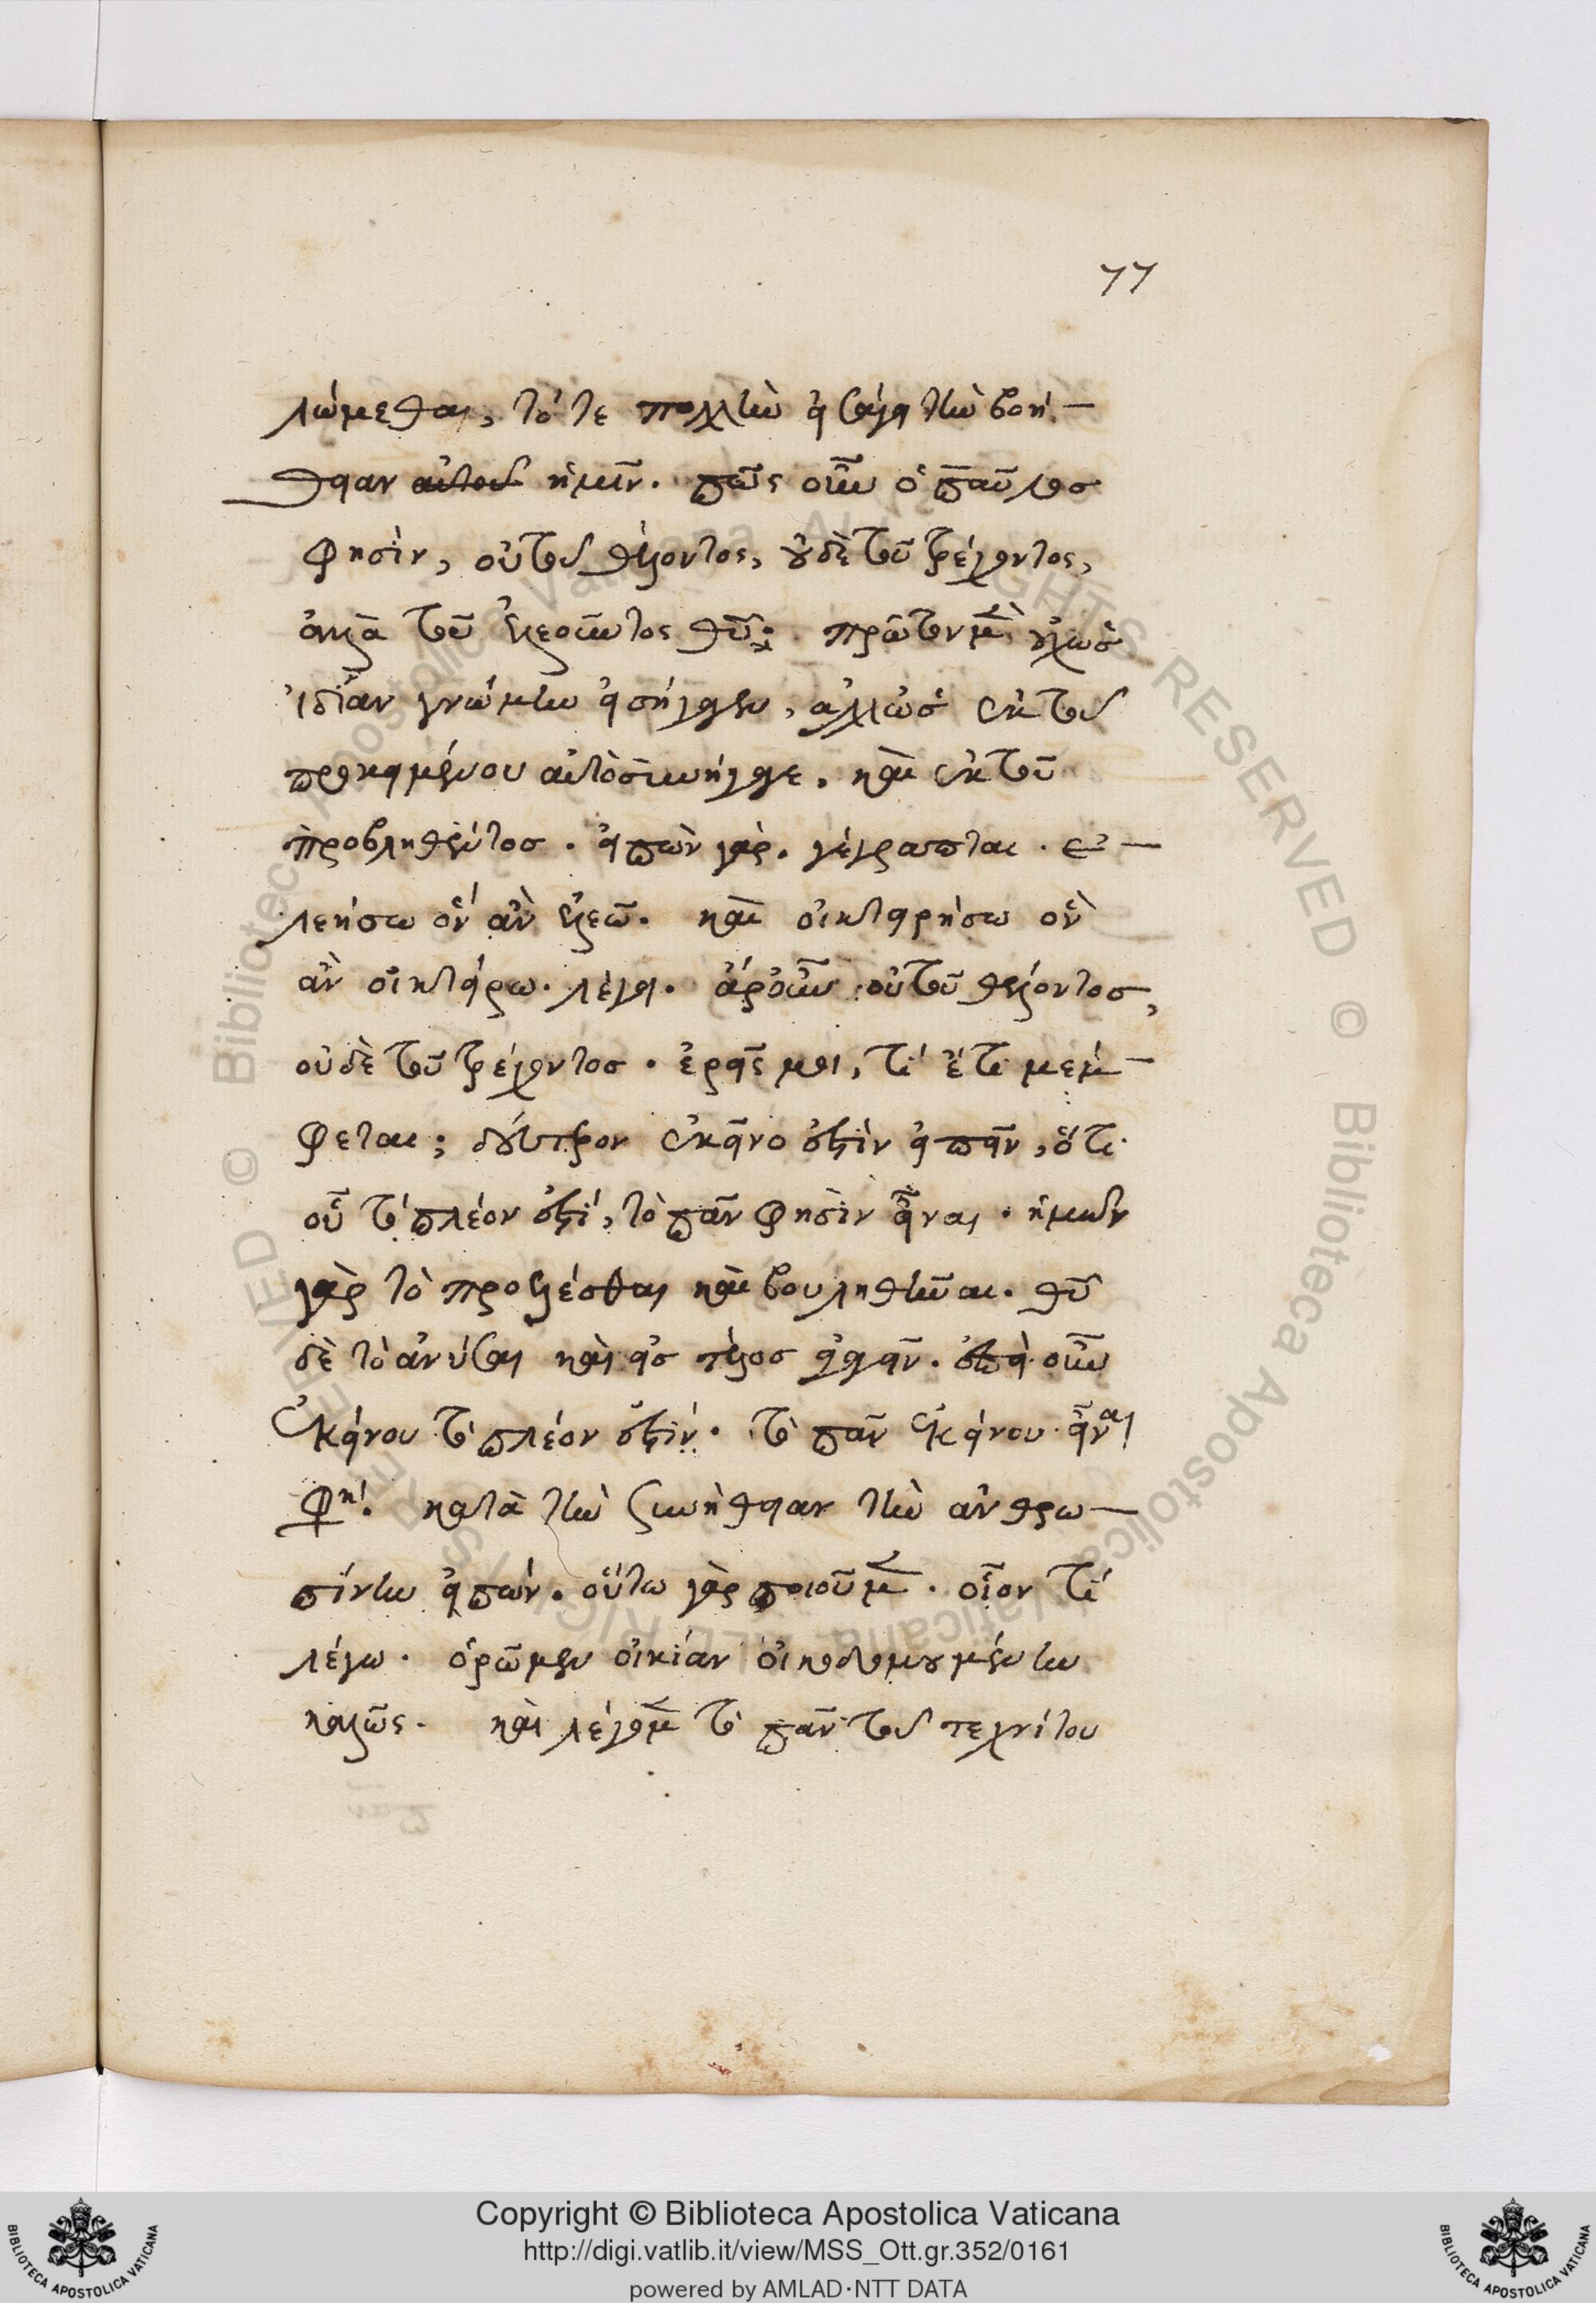 77
λώμεθα, τότε πολλὴν εἰσάγει τὴν βοή-
θειαν αὐτοῦ ἡμῖν. πῶς οὖν ὁ παῦλος
φησὶν, οὐ τοῦ θέλοντος, οὐδὲ τοῦ τρέχοντος,
ἀλλὰ τοῦ ἐλεοῦντος θεοῦ; πρῶτον μὲν οὐχ ὡς
ἰδίαν γνώμην εἰσήγαγεν, ἀλλ' ὡς ἐκ τοῦ
προκειμένου αὐτὸ συνήγαγε. καὶ ἐκ τοῦ
προβληθέντος. εἰπὼν γὰρ. γέγραπται. ἐ-
λεήσω ὃν ἂν ἐλεῶ. καὶ οἰκτειρήσω ὃν
ἂν οἰκτείρω. λέγει. ἄρ' οὖν οὐ τοῦ θέλοντος,
οὐδὲ τοῦ τρέχοντος. ἐρεῖς μοι, τί ἔτι μέμ-
φεται; δεύτερον ἐκεῖνο ἐστὶν εἰπεῖν, ὅτι
οὗ τὸ πλέον ἐστί, τὸ πᾶν φησὶν εἶναι. ἡμῶν
γὰρ τὸ προελέσθαι καὶ βουληθῆναι. θεοῦ
δὲ τὸ ἀνύσαι καὶ εἰς τέλος ἀγαγεῖν. ἐπεὶ οὖν
ἐκείνου τὸ πλέον ἐστίν. τὸ πᾶν ἐκείνου εἶναι
φησί. κατὰ τὴν συνήθειαν τὴν ἀνθρω-
πίνην εἰπών. οὕτω γὰρ ποιοῦμεν. οἷον τί
λέγω. ὁρῶμεν οἰκίαν οἰκοδομουμένην
καλῶς. καὶ λέγομεν τὸ πᾶν τοῦ τεχνίτου
Copyright © Biblioteca Apostolica Vaticana
http://digi.vatlib.it/view/MSS_Ott.gr.352/0161
powered by AMLAD·NTT DATA